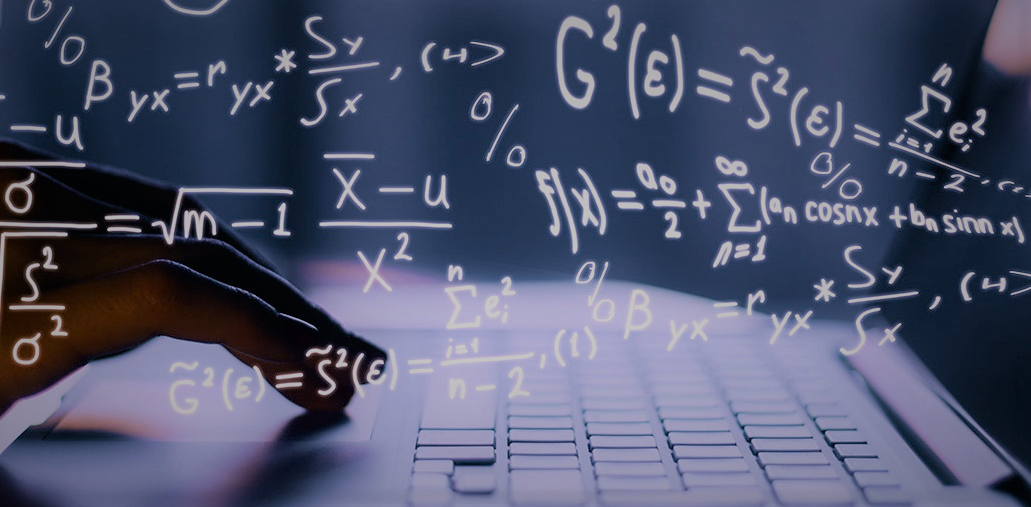 %
β yx = r yx * Sy/Sx, (4)
G²(ε) = S̃²(ε) = ∑ i=1 n e_i² / n-2, (
%
%
-u / σ
= √m-1
X̄-u / X²
f(x) = a₀/2 + ∑ n=1 ∞ (aₙ cosnx + bₙ sinn x)
√S²/σ²
%
β yx = r yx * Sy/Sx, (4)
G̃²(ε) = S̃²(ε) = ∑ i=1 n e_i² / n-2, (1)